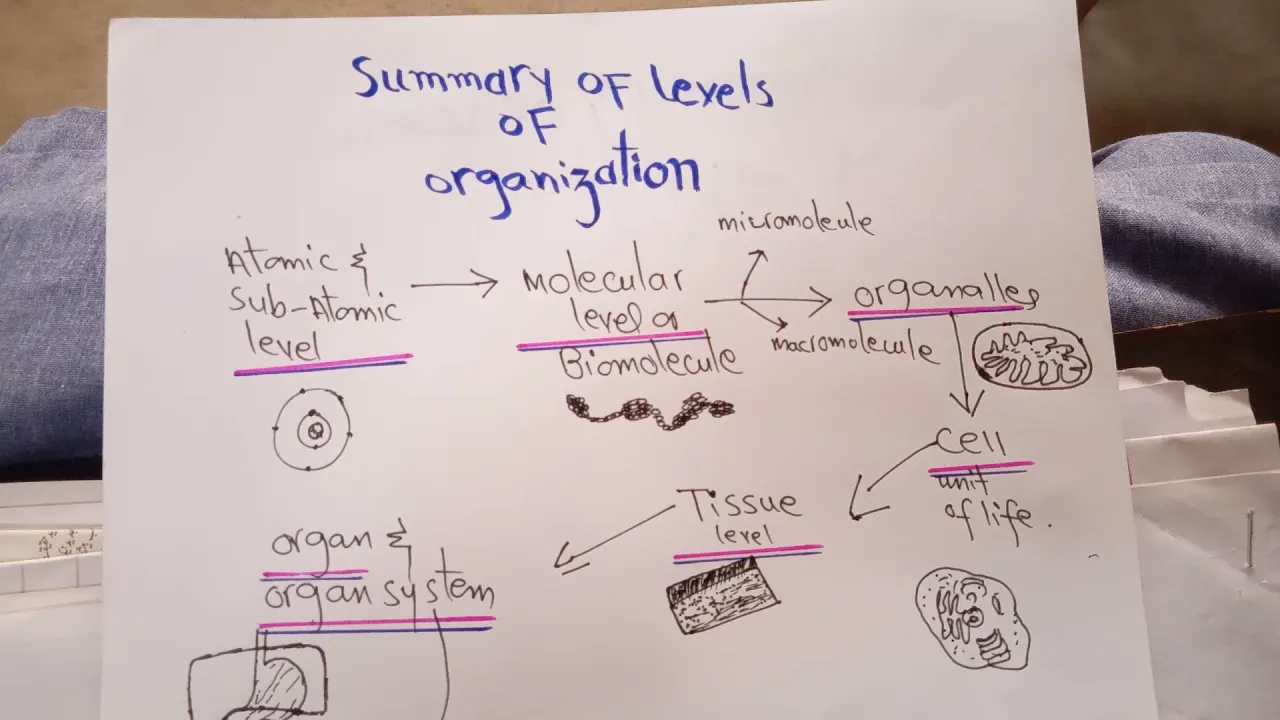 Summary OF Levels
OF
organization
Atomic &
Sub-Atomic
level
Molecular
level or
Biomolecule
micromolecule
macromolecule
organalles
cell
unit
of life.
Tissue
level
organ &
organ system